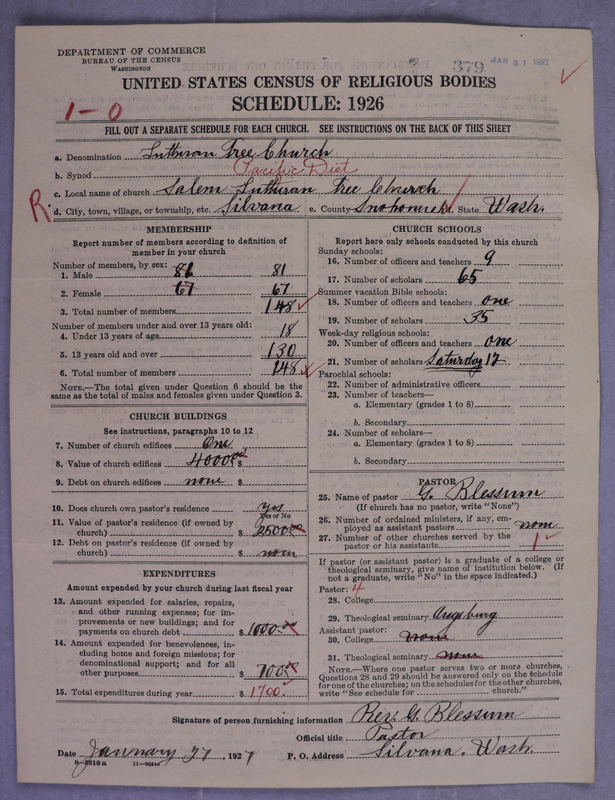 DEPARTMENT OF COMMERCE
BUREAU OF THE CENSUS
WASHINGTON
379
UNITED STATES CENSUS OF RELIGIOUS BODIES
1-0
SCHEDULE: 1926
FILL OUT A SEPARATE SCHEDULE FOR EACH CHURCH. SEE INSTRUCTIONS ON THE BACK OF THIS SHEET
a. Denomination Lutheran Free Church
b. Synod Pacific Dist
c. Local name of church Salem Lutheran Free Church
R. d. City, town, village, or township, etc. Silvana e. County Snohomish State Wash.
MEMBERSHIP
Report number of members according to definition of member in your church
Number of members, by sex:
1. Male 81
2. Female 67 67
3. Total number of members 148
Number of members under and over 13 years old:
4. Under 13 years of age 18
5. 13 years old and over 130
6. Total number of members 148
NOTE.—The total given under Question 6 should be the
same as the total of males and females given under Question 3.
CHURCH BUILDINGS
See instructions, paragraphs 10 to 12
7. Number of church edifices One
8. Value of church edifices 4000 $
9. Debt on church edifices none $
10. Does church own pastor's residence yes
Yes or No
11. Value of pastor's residence (if owned by
church) $ 2500
12. Debt on pastor's residence (if owned by
church) $ non
EXPENDITURES
Amount expended by your church during last fiscal year
13. Amount expended for salaries, repairs,
and other running expenses; for im-
provements or new buildings; and for
payments on church debt $ 1000
14. Amount expended for benevolences, in-
cluding home and foreign missions; for
denominational support; and for all
other purposes $ 700
15. Total expenditures during year $ 1700.
CHURCH SCHOOLS
Report here only schools conducted by this church
Sunday schools:
16. Number of officers and teachers 9
17. Number of scholars 65
Summer vacation Bible schools:
18. Number of officers and teachers one
19. Number of scholars 35
Week-day religious schools:
20. Number of officers and teachers one
21. Number of scholars Saturday 17
Parochial schools:
22. Number of administrative officers
23. Number of teachers—
a. Elementary (grades 1 to 8)
b. Secondary
24. Number of scholars—
a. Elementary (grades 1 to 8)
b. Secondary
PASTOR
25. Name of pastor G. Blessum
(If church has no pastor, write "None")
26. Number of ordained ministers, if any, em-
ployed as assistant pastors non
27. Number of other churches served by the
pastor or his assistants 1
If pastor (or assistant pastor) is a graduate of a college or
theological seminary, give name of institution below. (If
not a graduate, write "No" in the space indicated.)
Pastor: 4
28. College
29. Theological seminary Augsburg
Assistant pastor:
30. College non
31. Theological seminary non
NOTE.—Where one pastor serves two or more churches,
Questions 28 and 29 should be answered only on the schedule
for one of the churches; on the schedules for the other churches,
write "See schedule for church."
Signature of person furnishing information Rev. G. Blessum
Official title Pastor
Date January 27, 1927 P. O. Address Silvana. Wash.
8-5518a 11-90544